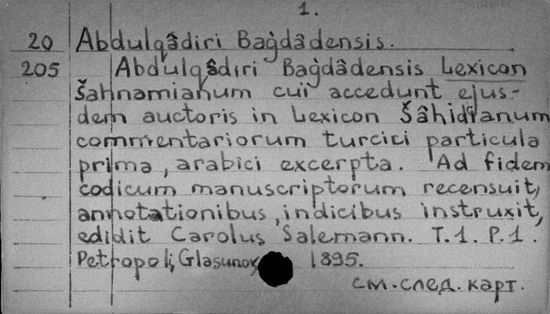 1.
20 Abdulqâdiri Baġdâdensis.
205 Abdulqâdiri Baġdâdensis Lexicon
Šahnamianum cui accedunt ejus-
dem auctoris in Lexicon Šâhidianum
commentariorum turcici particula
prima, arabici excerpta. Ad fidem
codicum manuscriptorum recensuit,
annotationibus, indicibus instruxit,
edidit Carolus Salemann. T.1. P.1.
Petropoli, Glasunov 1895.
см. след. карт.